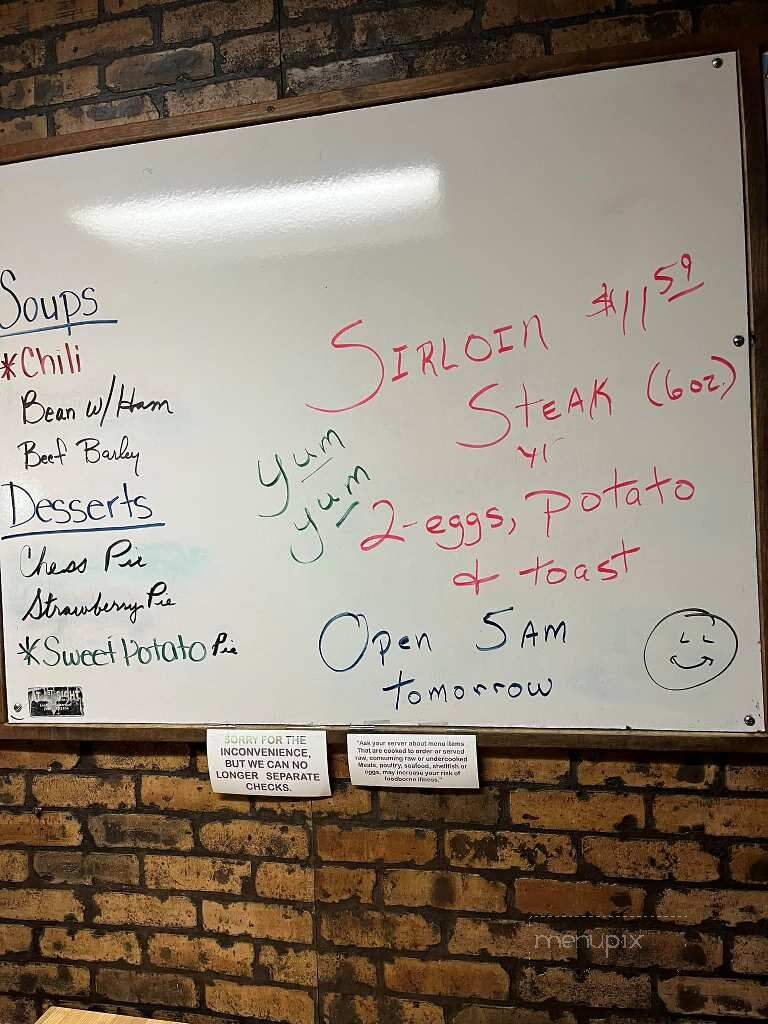 Soups
*Chili
Bean w/Ham
Beef Barley
Desserts
Chess Pie
Strawberry Pie
*Sweet Potato Pie
SIRLOIN $11.59
STEAK (6oz.)
yum
yum
2-eggs, Potato
& toast
Open 5AM
tomorrow
AT 1ST SIGHT
SORRY FOR THE
INCONVENIENCE,
BUT WE CAN NO
LONGER SEPARATE
CHECKS.
"Ask your server about menu items
That are cooked to order or served
raw, consuming raw or undercooked
Meats, poultry, seafood, shellfish or
eggs, may increase your risk of
foodborne illness."
menupix